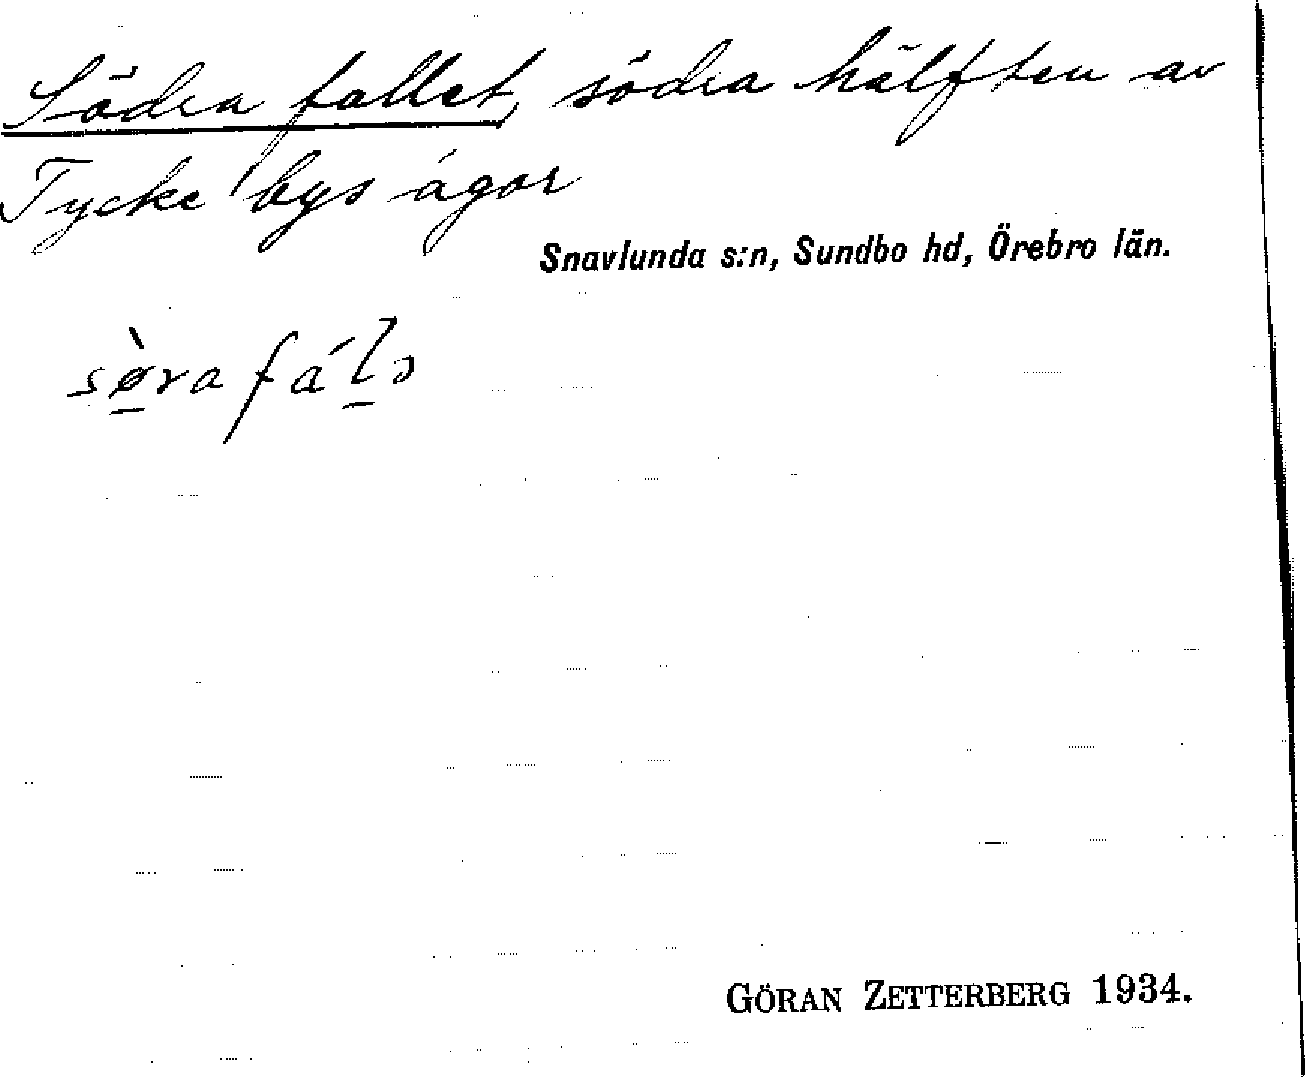 Södra fallet, södra hälften av
Tycke bys ägor
Snavlunda s:n, Sundbo hd, Örebro län.
sø̀ra fálə
GÖRAN ZETTERBERG 1934.